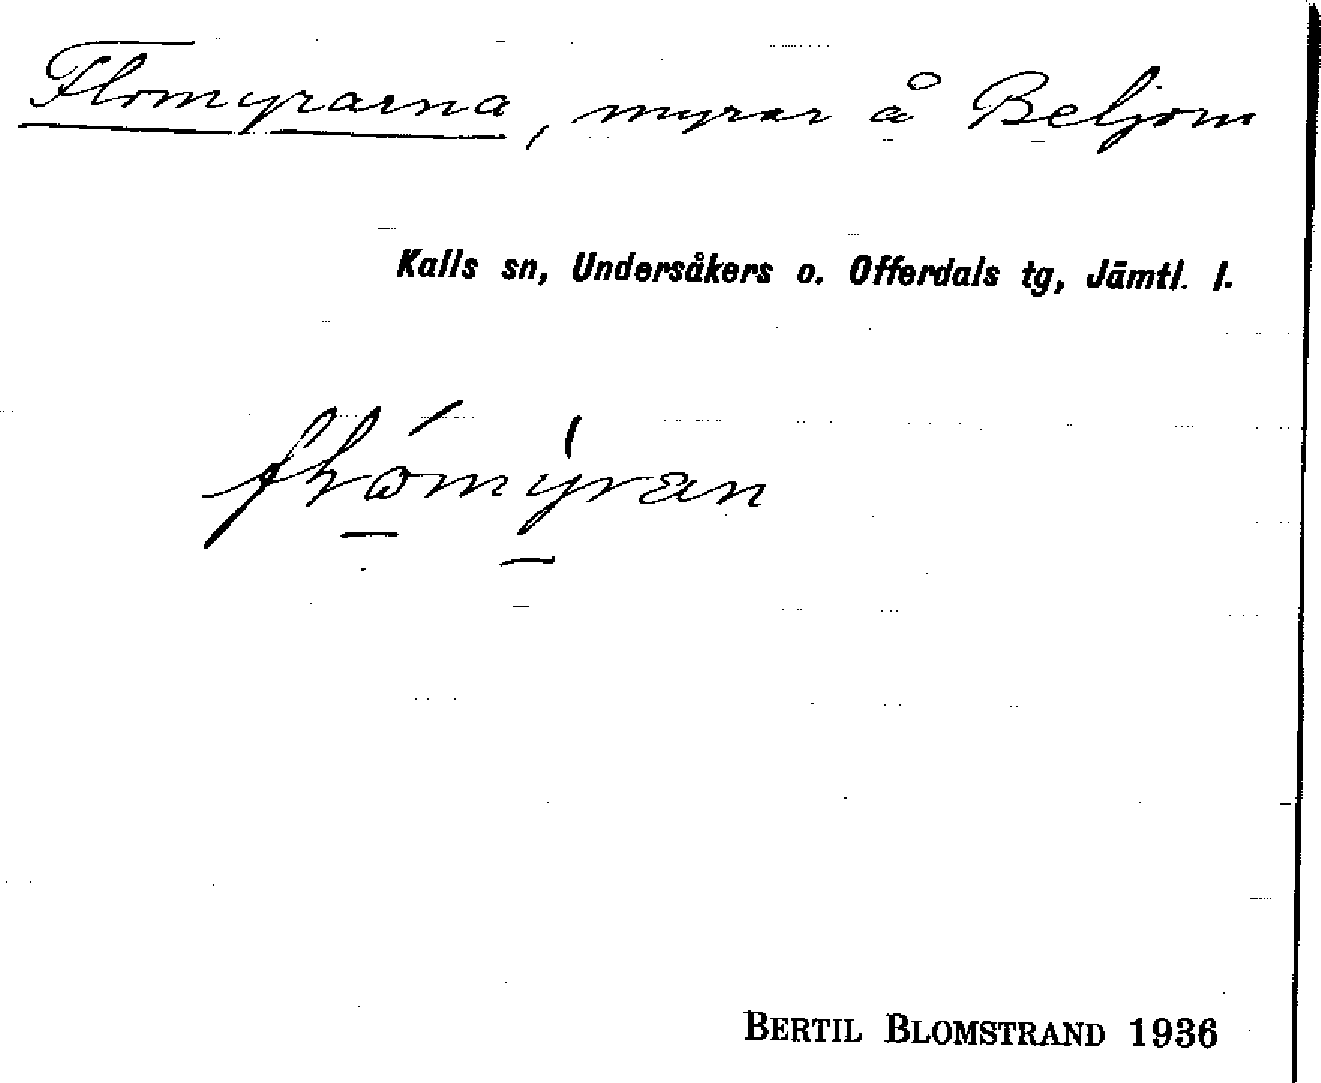 Flomyrarna, myrar å Beljom
Kalls sn, Undersåkers o. Offerdals tg, Jämtl. l.
BERTIL BLOMSTRAND 1936